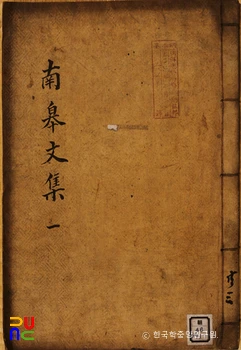 南皐文集 一
共三
ⓒ 한국학중앙연구원